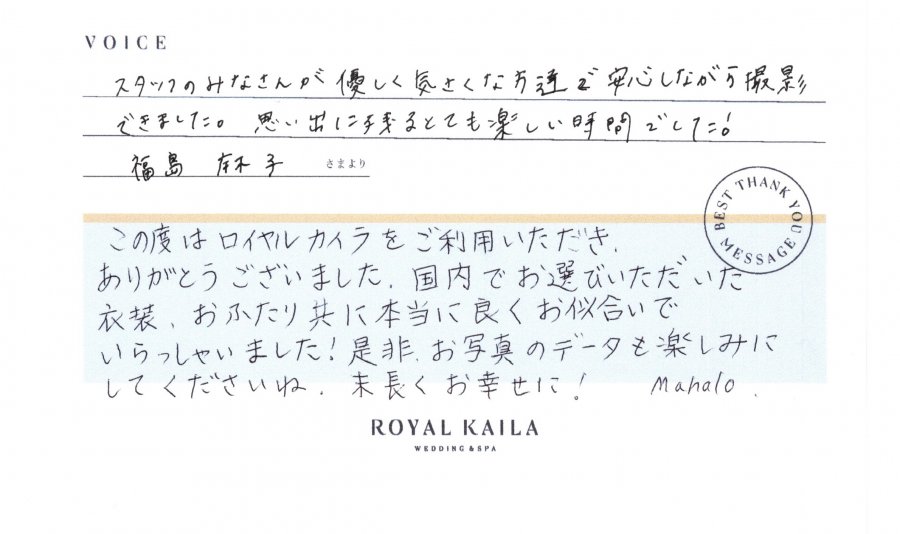 VOICE
スタッフのみなさんが優しく気さくな方達で安心しながら撮影
できました。思い出に残るとても楽しい時間でした!
福島 麻子 さまより
BEST THANK YOU MESSAGE
この度はロイヤルカイラをご利用いただき、
ありがとうございました。国内でお選びいただいた
衣装、おふたり共に本当に良くお似合いで
いらっしゃいました!是非、お写真のデータも楽しみに
してくださいね。末長くお幸せに! Mahalo.
ROYAL KAILA
WEDDING & SPA